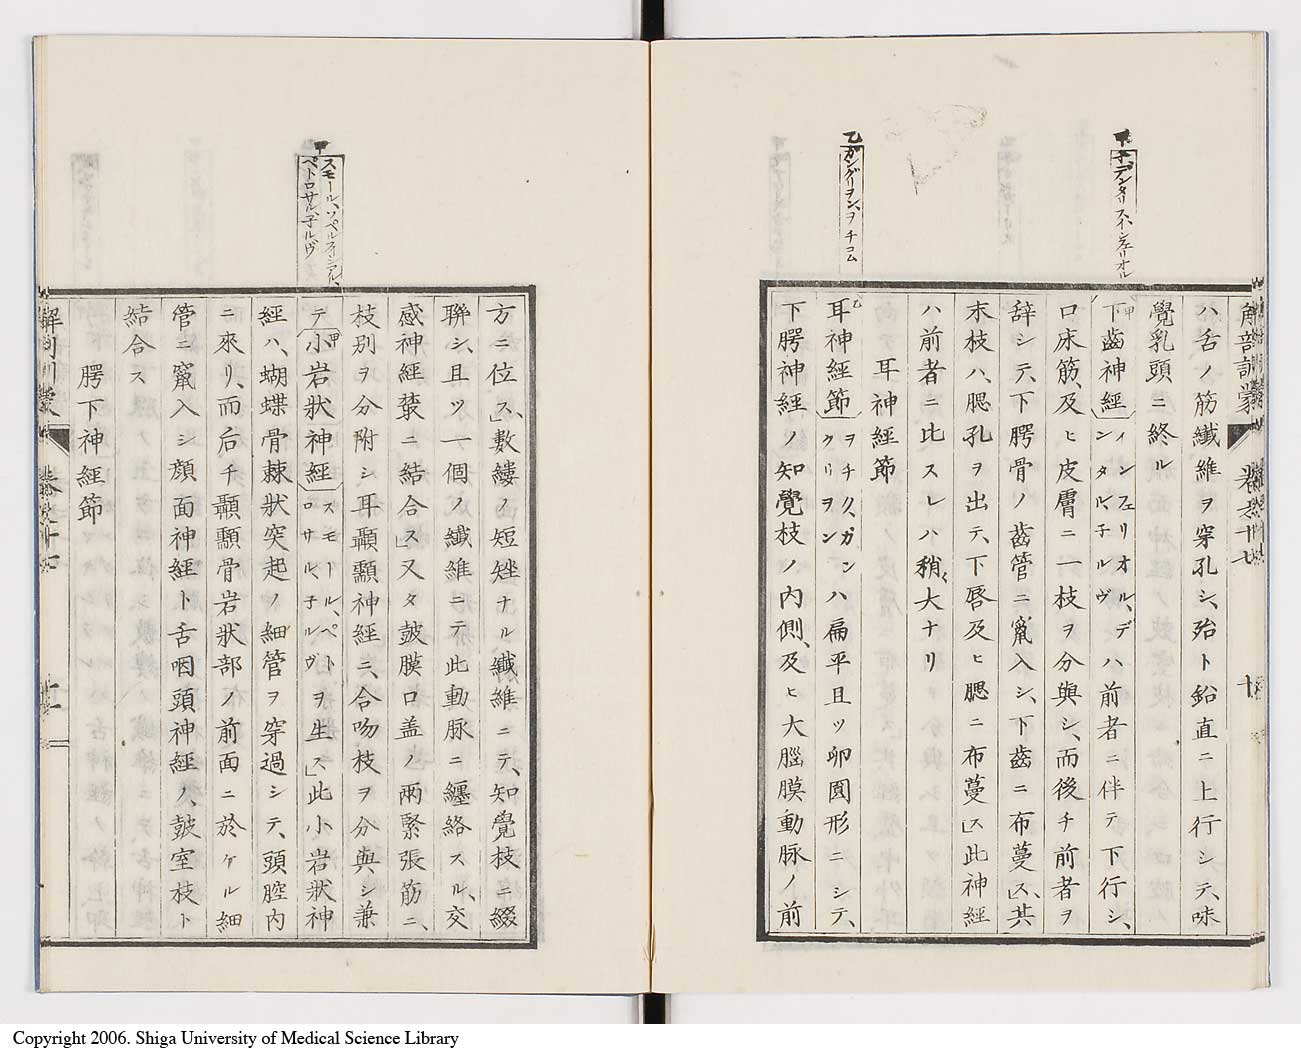 解剖訓蒙 卷之十七 十
甲 子ーデンタリス、インフェリオル
乙 ガングリヲン、ヲチコム
ハ舌ノ筋纖維ヲ穿孔シ、殆ト鉛直ニ上行シテ、味
覺乳頭ニ終ル
下齒神經 インフェリオル、デンタル、子ルヴ ハ前者ニ伴テ下行シ、
口床筋、及ヒ皮膚ニ一枝ヲ分與シ、而後チ前者ヲ
辞シテ、下腭骨ノ齒管ニ竄入シ、下齒ニ布蔓ス、其
末枝ハ、腮孔ヲ出テ、下唇及ヒ腮ニ布蔓ス」此神經
ハ前者ニ比スレハ稍々大ナリ
耳神經節
耳神經節 ヲチク、ガンクリヲン ハ扁平且ツ卵圓形ニシテ、
下腭神經ノ知覺枝ノ内側、及ヒ大腦膜動脉ノ前
甲 スモール、ソペルフィシアル、
ペトロサル、子ルヴ
方ニ位ス」數縷ノ短矬ナル纖維ニテ、知覺枝ニ綴
聯シ、且ツ一個ノ纖維ニテ此動脉ニ纏絡スル、交
感神經叢ニ結合ス」又タ皷膜口盖ノ兩緊張筋ニ、
枝別ヲ分附シ耳顳顬神經ニ、合吻枝ヲ分與シ兼
テ小岩狀神經 スモール、ペトロサル、子ルヴ ヲ生ス」此小岩狀神
經ハ、蝴蝶骨棘狀突起ノ細管ヲ穿過シテ、頭腔内
ニ來リ、而后チ顳顬骨岩狀部ノ前面ニ於ケル細
管ニ竄入シ顔面神經ト舌咽頭神經ノ、皷室枝ト
結合ス
腭下神經節
解剖訓蒙 卷之十七 十一
Copyright 2006. Shiga University of Medical Science Library